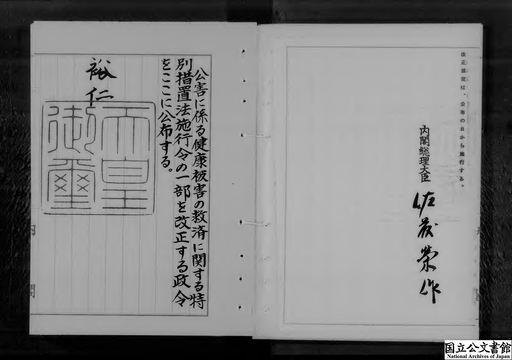 改正法令は、公布の日から施行する。
内閣総理大臣
佐藤榮作
公害に係る健康被害の救済に関する特
別措置法施行令の一部を改正する政令
をここに公布する。
裕仁
天皇
御璽
国立公文書館
National Archives of Japan